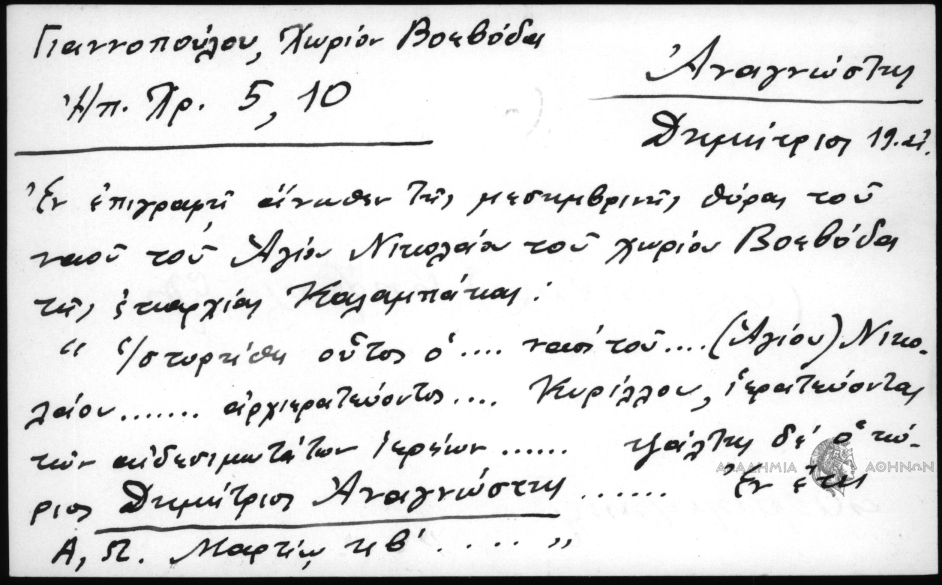 Γιαννοπούλου, Χωρίον Βοεβόδα
Ἠπ. Χρ. 5, 10
Ἀναγνώστης
Δημήτριος 19. αἰ.
Ἐν ἐπιγραφῇ ἄνωθεν τῆς μεσημβρινῆς θύρας τοῦ
ναοῦ τοῦ Ἁγίου Νικολάου τοῦ χωρίου Βοεβόδα
τῆς ἐπαρχίας Καλαμπάκας:
“ Ἱστορήθη οὗτος ὁ .... ναὸς τοῦ .... (Ἁγίου) Νικο-
λάου ....... ἀρχιερατεύοντος .... Κυρίλλου, ἱερατεύοντας
τῶν αἰδεσιμωτάτων ἱερέων ...... ψάλτης δέ ὁ κύ-
ριος Δημήτριος Ἀναγνώστης ...... Ἐν ἔτει
Α, Ω. Μαρτίῳ κβ' ..... ”
ΑΚΑΔΗΜΙΑ ΑΘΗΝΩΝ